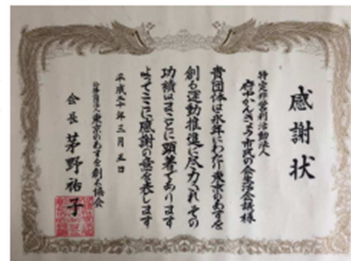 感謝状
特定非営利活動法人
府中かんきょう市民の会生活会議様
貴団体は永年にわたり東京のあすを
創る運動推進に尽力されその
功績はまことに顕著であります
よってここに感謝の意を表します
平成二十年三月五日
東京のあすを創る協会
会長 茅野祐子